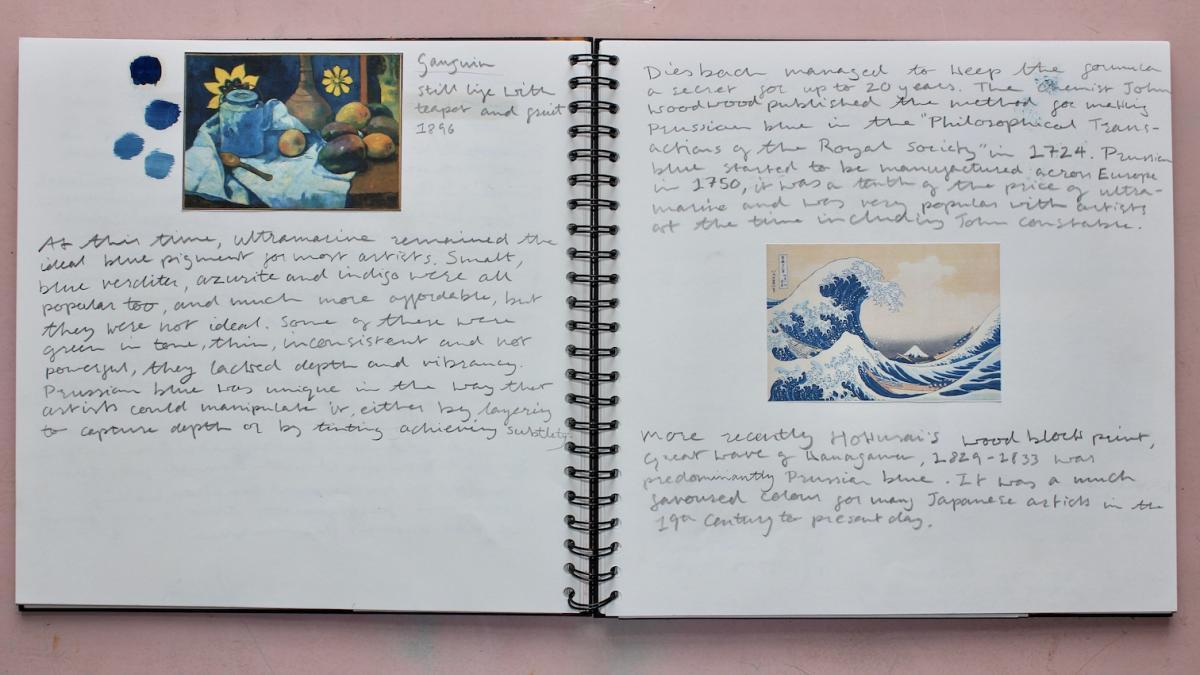 Gauguin
still life with
teapot and fruit
1896
At this time, ultramarine remained the
ideal blue pigment for most artists. Smalt,
blue verditer, azurite and indigo were all
popular too, and much more affordable, but
they were not ideal. Some of these were
green in tone, thin, inconsistent and not
powerful, they lacked depth and vibrancy.
Prussian blue was unique in the way that
artists could manipulate it, either by layering
to capture depth or by tinting achieving subtlety.
Diesbach managed to keep the formula
a secret for up to 20 years. The chemist John
woodwood published the method for making
Prussian blue in the "Philosophical Trans-
actions of the Royal Society" in 1724. Prussian
blue started to be manufactured across Europe
in 1750, it was a tenth of the price of ultra-
marine and was very popular with artists
at the time including John Constable.
More recently Hokusai's wood block print,
Great wave of Kanagawa, 1829-1833 was
predominantly Prussian blue. It was a much
favoured colour for many Japanese artists in the
19th Century to present day.